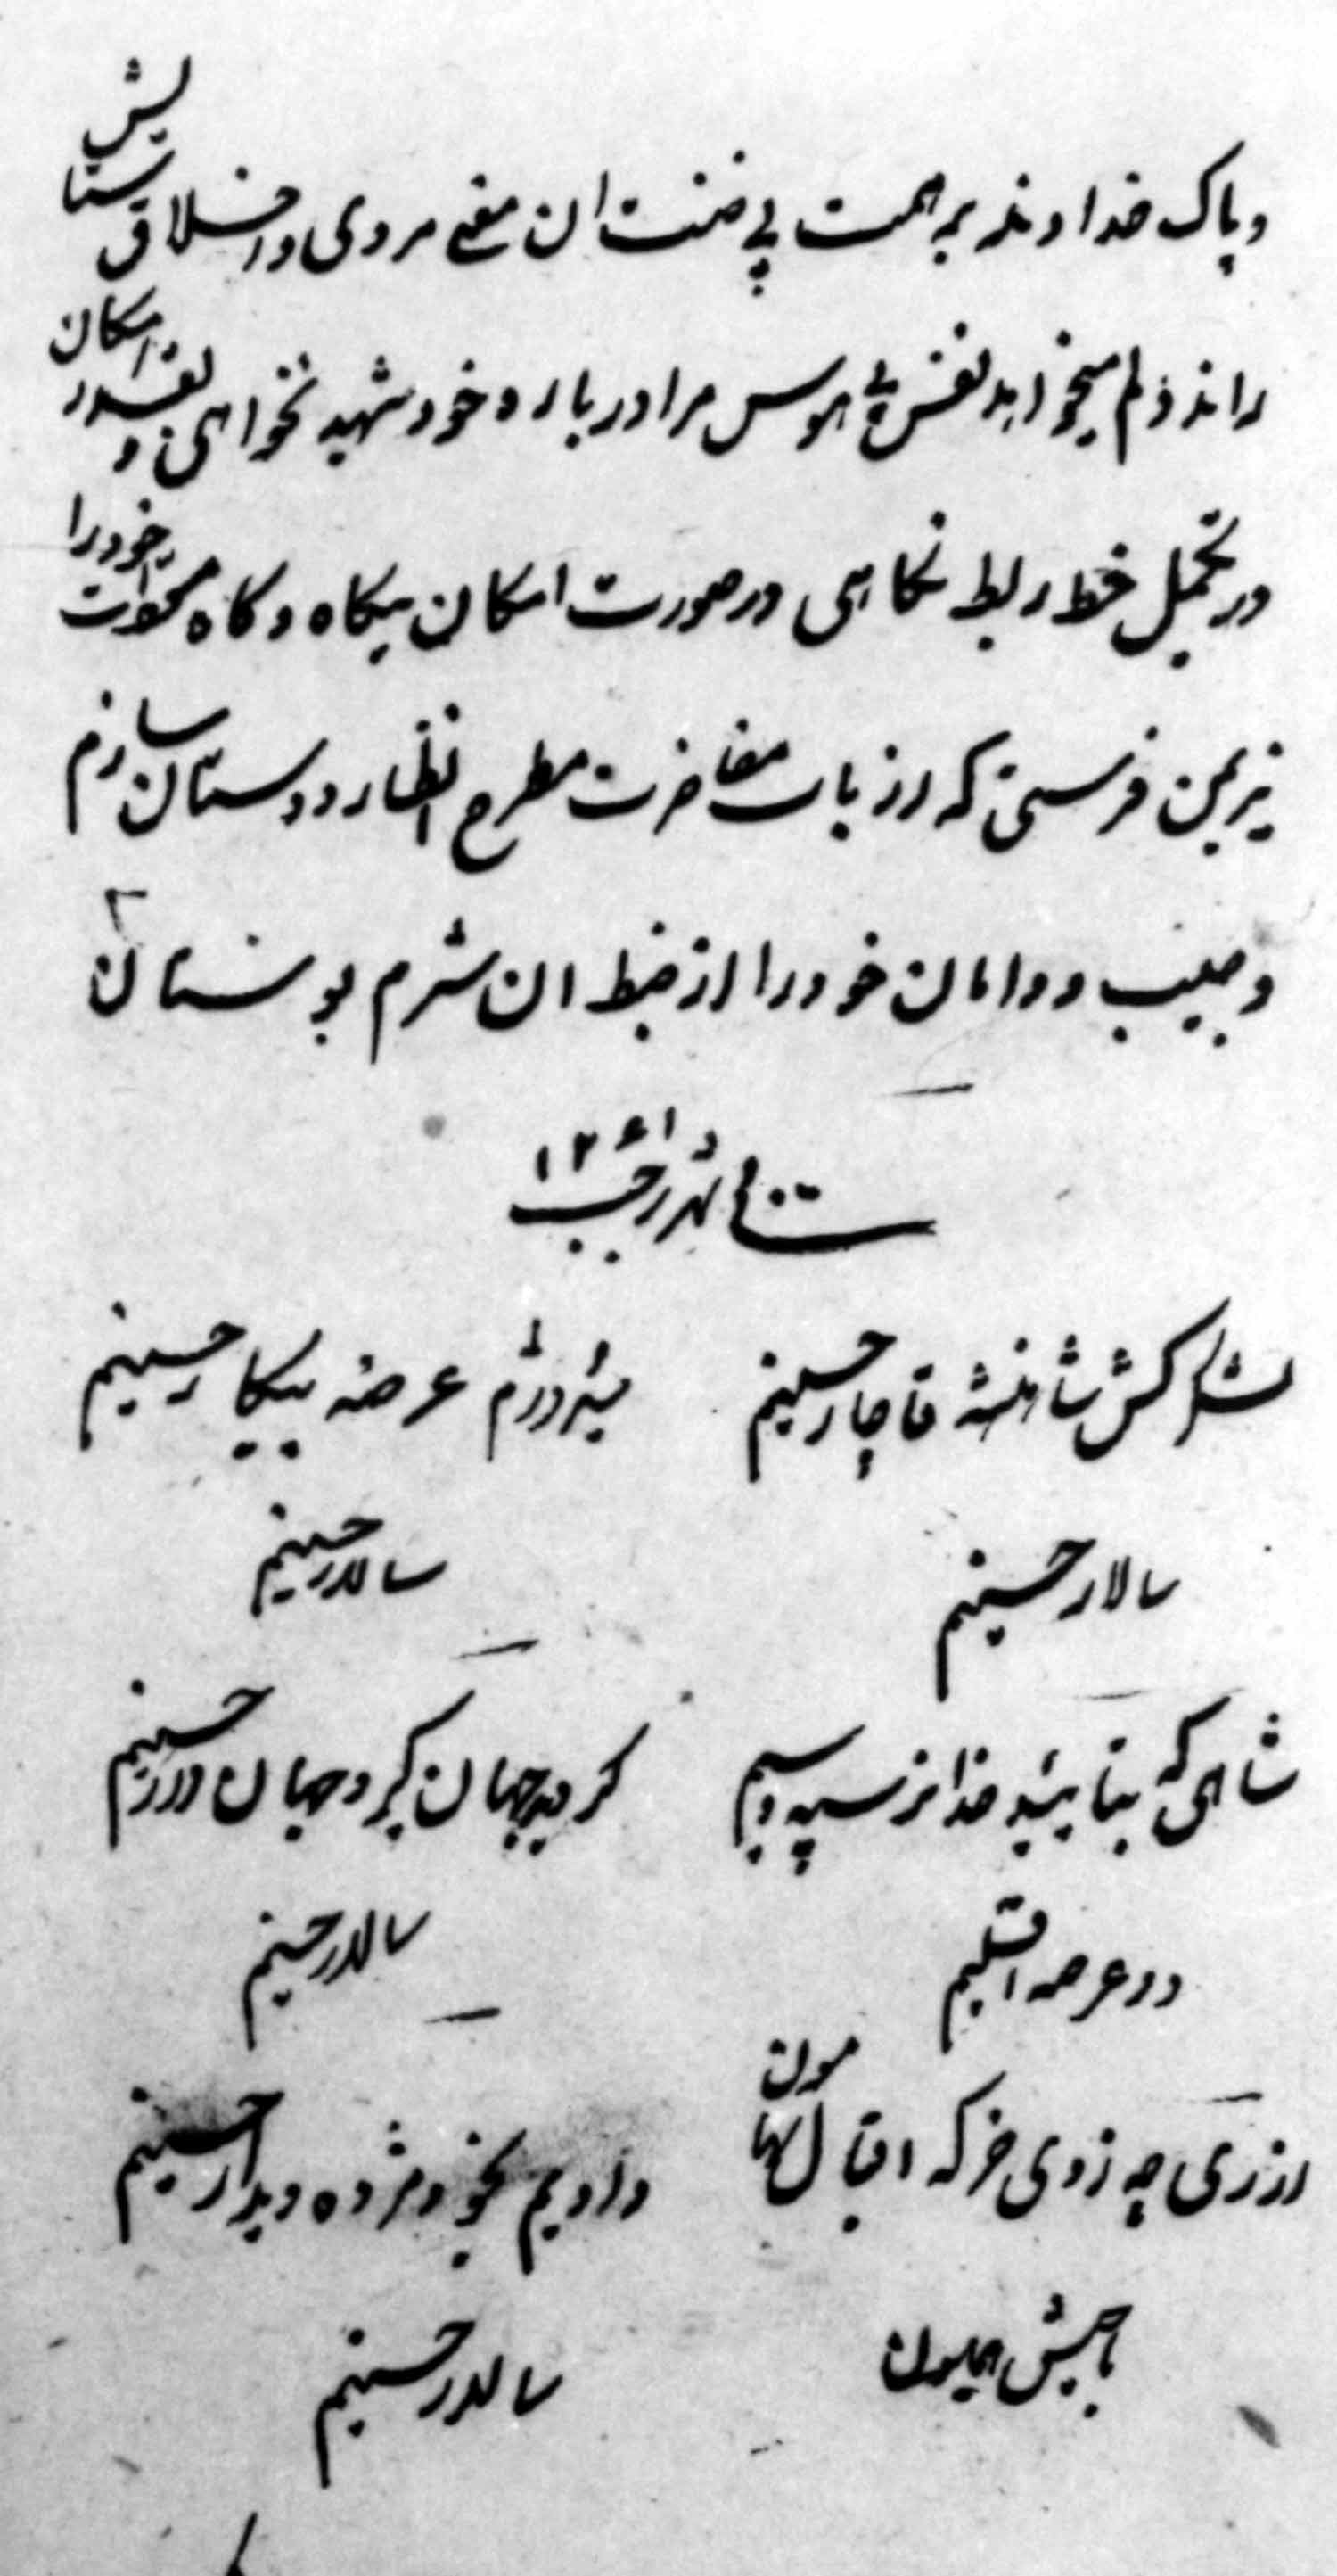 و پاک خداوند بر همت بی ضنت ان معنی مردی و اخلاق ستایش
راند دلم میخواهد نفس بی هوس مرا در باره خود شهید نخواهی و بقدر امکان
در تحمیل خط ربط نکاهی در صورت امکان بیکاه و کاه محظورات خود را
نیز بمن فرستی که از باب مفاخرت مطرح انظار دوستان سازم
و جیب و دامان خود را از ضبط ان شرم بوستان
شهر رجب ۱۲۶۱
لشکرکش شاهنشه قاجار حسینم
شیر دژم عرصه پیکار حسینم
سالار حسینم
سالار حسینم
شاهی که بتایید خدا نز سپه و بیم
در عرصه اقلیم
سالار حسینم
از ری چه زدی خرکه اقبال بهامون
دادیم بخود مژده دیدار حسینم
با جیش همایون
سالار حسینم